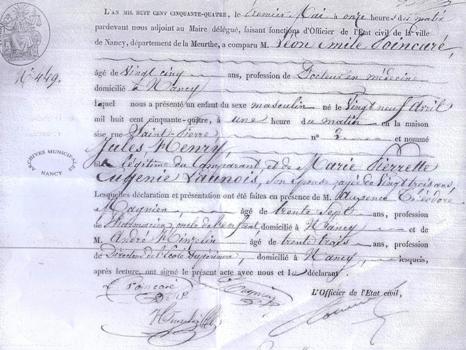 L'AN MIL HUIT CENT CINQUANTE-QUATRE, le premier Mai à onze heures du matin
pardevant nous adjoint au Maire délégué, faisant fonctions d'Officier de l'Etat civil de la ville
de Nancy, département de la Meurthe, a comparu M. Léon Emile Poincaré,
N° 449.
âgé de Vingt cinq ans, profession de Docteur en médecine
domicilié à Nancy
lequel nous a présenté un enfant du sexe masculin né le Vingt neuf Avril
mil huit cent cinquante-quatre, à une heure du matin en la maison
sise rue Saint-Pierre n° 2 et nommé
Jules Henry
ARCHIVES MUNICIPALES
NANCY
fils légitime du Comparant et de Marie Pierrette
Eugénie Launois, son épouse âgée de Vingt trois ans,
Lesquelles déclaration et présentation ont été faites en présence de M. Théodore
Magnien, âgé de trente sept ans, profession
de Pharmacien, oncle de l'enfant, domicilié à Nancy et de
M. André, âgé de trente trois ans, profession
de Directeur de l'Ecole Supérieure, domicilié à Nancy, lesquels,
après lecture, ont signé le présent acte avec nous et le déclarant.
L'Officier de l'Etat civil,
Poincaré
Magnien